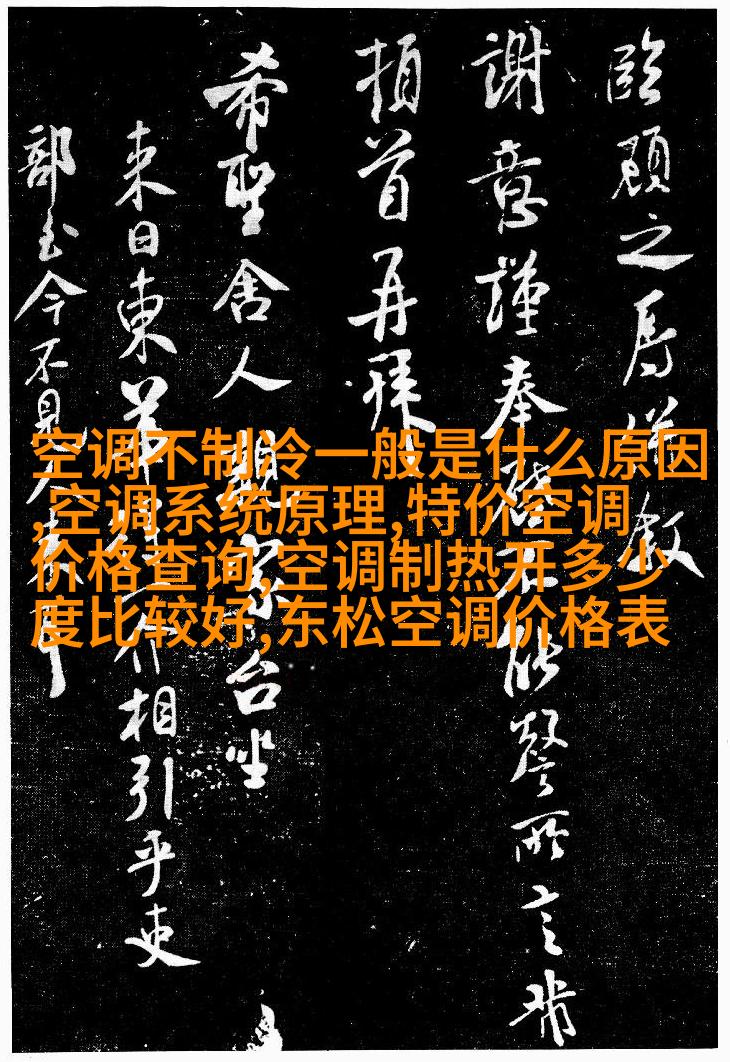 臨顧之辱叙
謝意謹奉啓不能罄所言
頓首再拜
希聖舍人親家台坐
来日東相引乎吏
部至今不見人
空调不制冷一般是什么原因
,空调系统原理,特价空调
价格查询,空调制热开多少
度比较好,东松空调价格表